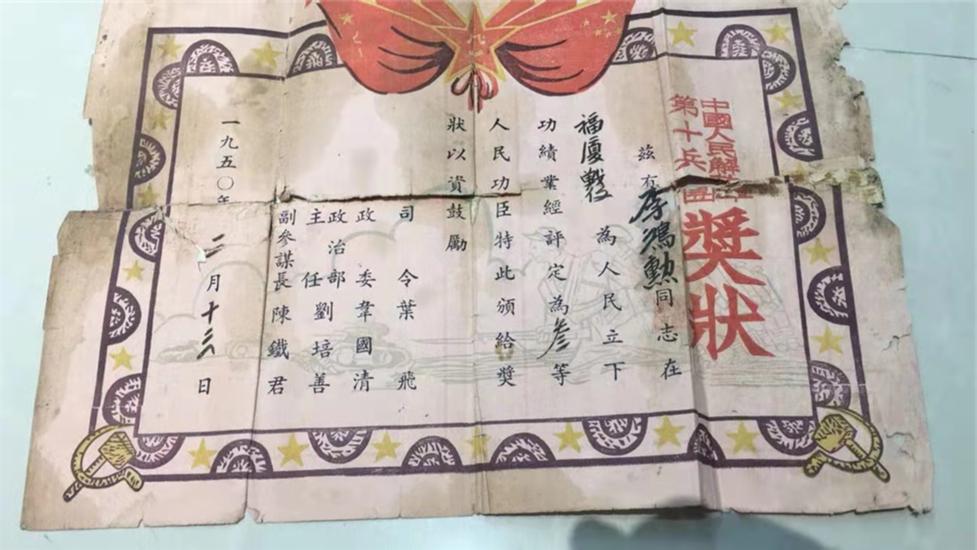 中國人民解
第十兵團
獎狀
茲有李鴻勲同志在
福厦戰役為人民立下
功績業經評定為叁等
人民功臣特此頒給獎
狀以資鼓勵
司令葉飛
政委韋國清
政治部
主任劉培善
副參謀長陳鐵君
一九五〇年二月十六日